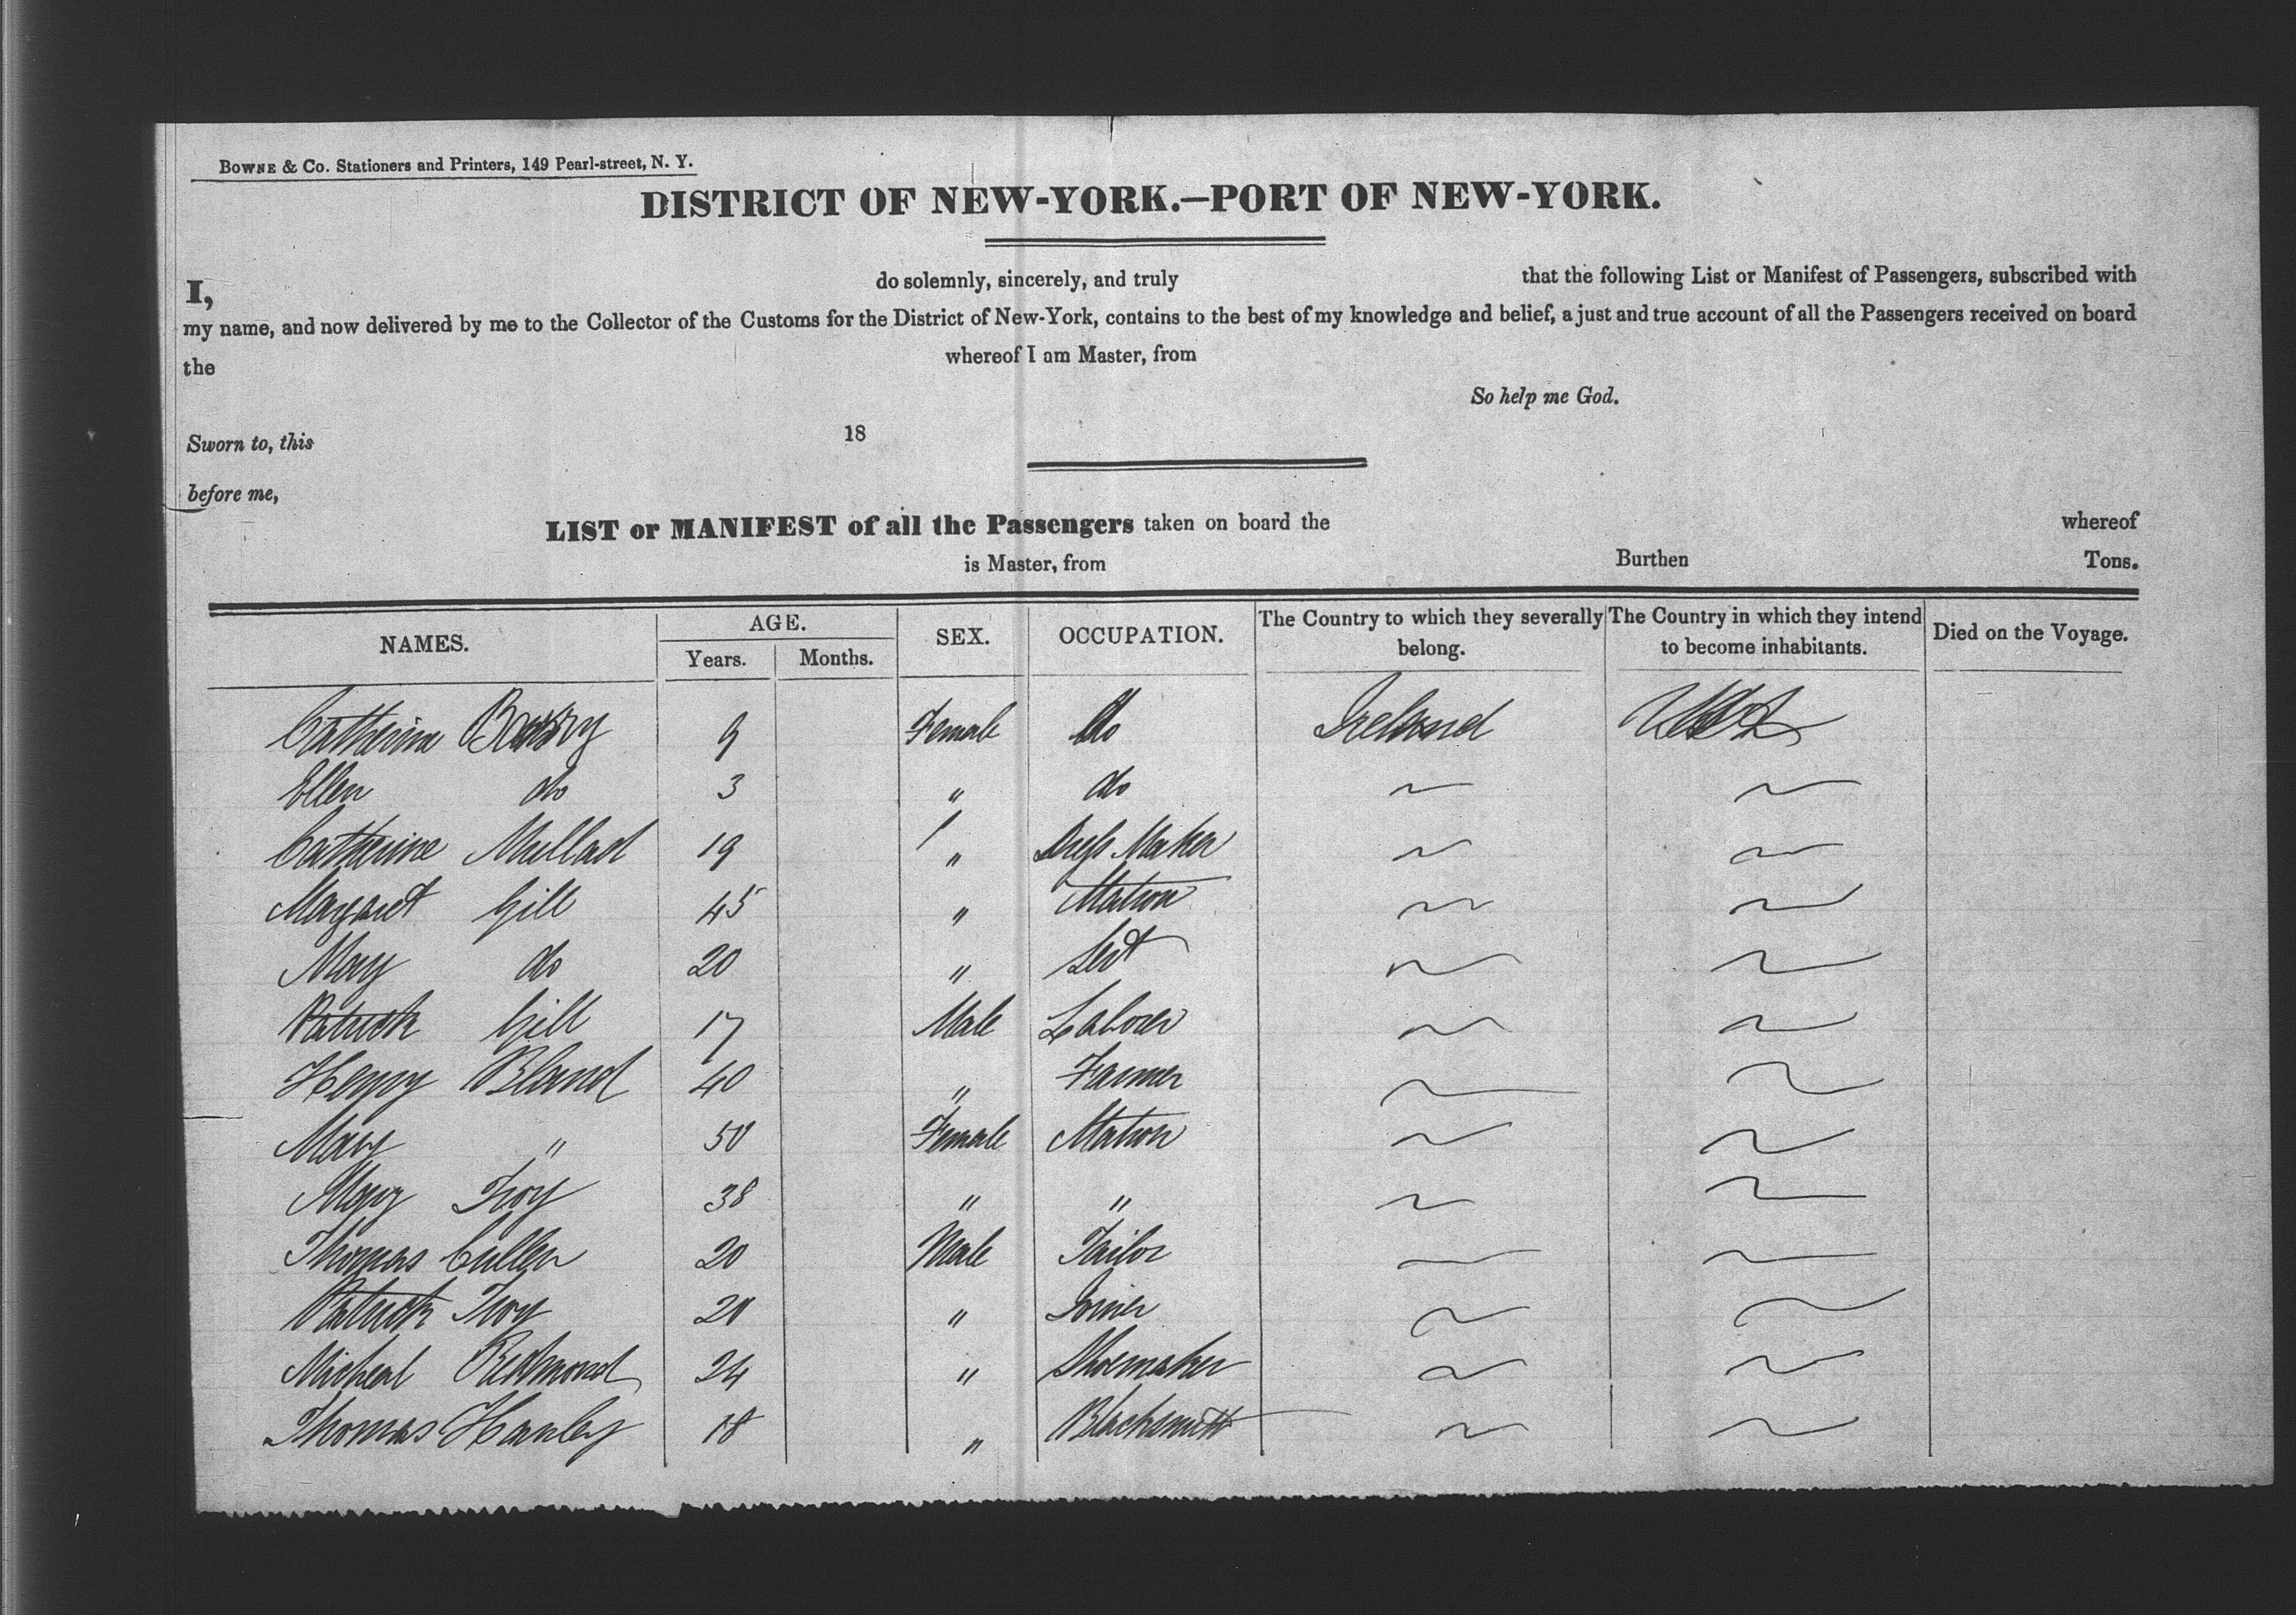 BOWNE & Co. Stationers and Printers, 149 Pearl-street, N. Y.
DISTRICT OF NEW-YORK.—PORT OF NEW-YORK.
I, do solemnly, sincerely, and truly that the following List or Manifest of Passengers, subscribed with
my name, and now delivered by me to the Collector of the Customs for the District of New-York, contains to the best of my knowledge and belief, a just and true account of all the Passengers received on board
the whereof I am Master, from
So help me God.
Sworn to, this 18
before me,
LIST or MANIFEST of all the Passengers taken on board the whereof
is Master, from Burthen Tons.
NAMES. AGE. Years. Months. SEX. OCCUPATION. The Country to which they severally belong. The Country in which they intend to become inhabitants. Died on the Voyage.
Catherine 9 Female do Ireland
Ellen do 3 " do ~ ~
Catherine 19 " Dress Maker ~ ~
Margaret Gill 45 " Matron ~ ~
Mary do 20 " ~ ~
Patrick Gill 17 Male Laborer ~ ~
Henry Bland 40 " Farmer ~ ~
Mary " 50 Female Matron ~ ~
Mary Troy 38 " " ~ ~
Thomas Cullen 20 Male Tailor ~ ~
Patrick Troy 20 " Joiner ~ ~
Micheal Redmond 24 " Shoemaker ~ ~
Thomas Hanley 18 " Blacksmith ~ ~